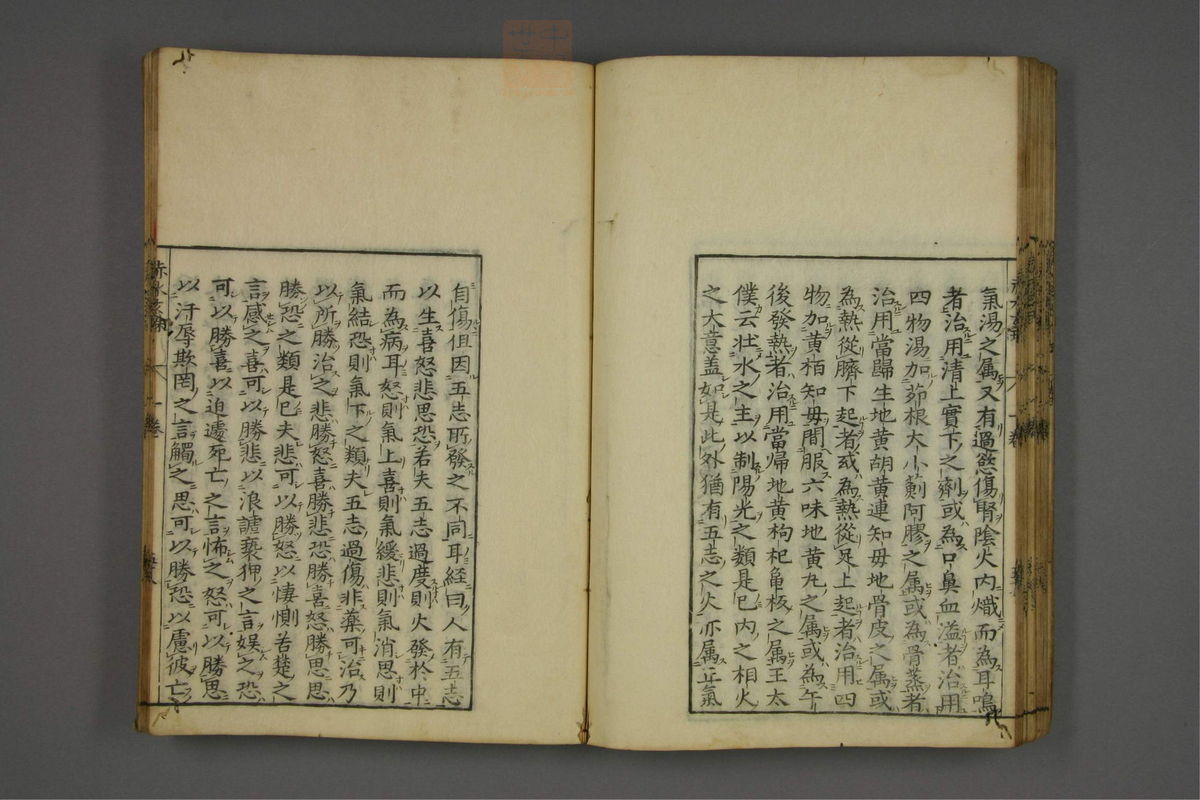 氣湯之属又有過慾傷腎陰火内熾而為耳鳴
者治用清上實下之劑或為口鼻血溢者治用
四物湯加茆根大小薊阿膠之属或為骨蒸者
治用當歸生地黄胡黄連知毋地骨皮之属或
為熱從臍下起者或為熱從足上起者治用四
物加黄栢知毋間服六味地黄丸之属或為午
後發熱者治用當帰地黄枸杞亀板之属王太
僕云壮水之主以制陽光之類是已内之相火
之大意盖如是此外猶有五志之火亦属正氣
自傷但因五志所發之不同耳経曰人有五志
以生喜怒悲思恐若夫五志過度則火發於中
而為病耳怒則氣上喜則氣緩悲則氣消思則
氣結恐則氣下之類夫五志過傷非藥可治乃
以所勝治之悲勝怒喜勝悲恐勝喜怒勝思思
勝恐之類是已夫悲可以勝怒以悽惻苦楚之
言感之喜可以勝悲以浪謔䙝狎之言娯之恐
可以勝喜以迫遽死亡之言怖之怒可以勝思
以汙辱欺罔之言觸之思可以勝恐以慮彼亡
赤水玄珠
一卷